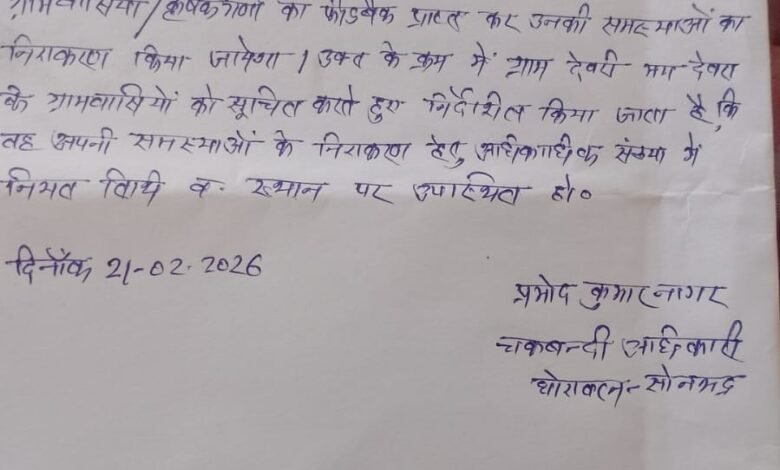 ग्रामवासियों/कृषकगणों का फीडबैक प्राप्त कर उनकी समस्याओं का
निराकरण किया जायेगा। उक्त के क्रम में ग्राम देवरी मय देवरा
के ग्रामवासियों को सूचित करते हुए निर्देशित किया जाता है, कि
वह अपनी समस्याओं के निराकरण हेतु अधिकाधिक संख्या में
नियत तिथि व स्थान पर उपास्थित हो०
दिनाँक 21-02-2026
प्रमोद कुमार नागर
चकबन्दी अधिकारी
घोरावल- सोनभद्र